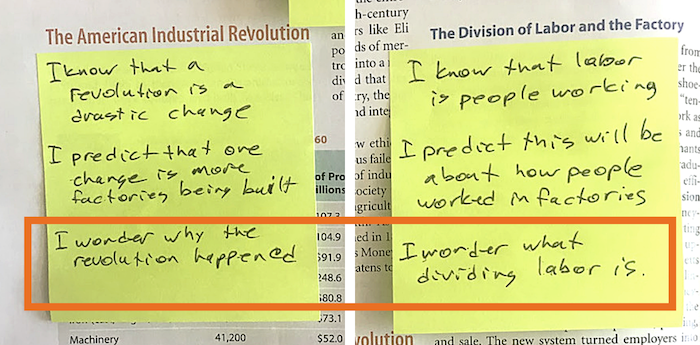 The American Industrial Revolution
I know that a
revolution is a
drastic change
I predict that one
change is more
factories being built
I wonder why the
revolution happened
60
of Pro
illions
107.3
104.9
591.9
248.6
580.8
573.1
Machinery 41,200 $52.0
h-century
rs like Eli
ds of mer-
into a
d that
ry, the
d inte
The Division of Labor and the Factory
I know that labor
is people working
I predict this will be
about how people
worked in factories
I wonder what
dividing labor is.
w ethi
us faile
of indu
ociety
gricult
ed in 1
s Mone
atens to
volution
from
er the
shoe-
"ten-
rk as
s and
hants
radu-
effi-
sion
and sale. The new system turned employers into